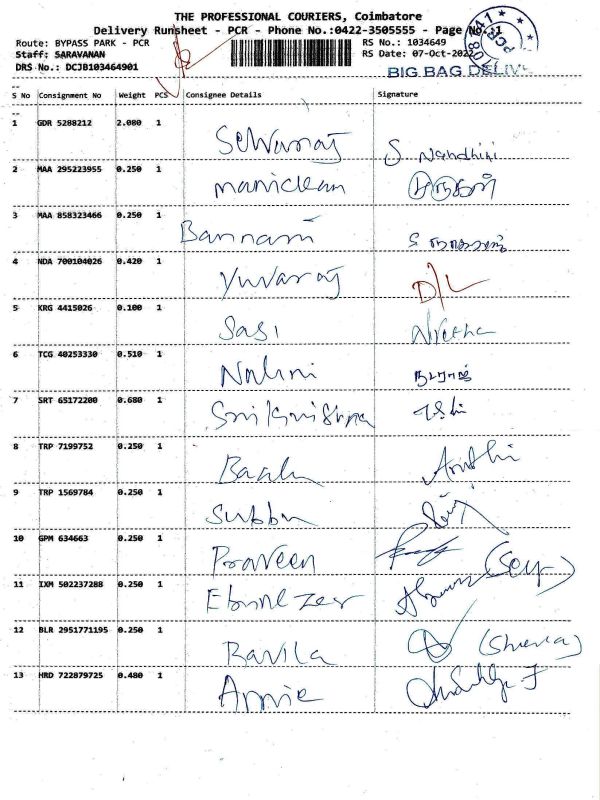 THE PROFESSIONAL COURIERS, Coimbatore
Delivery Runsheet - PCR - Phone No.:0422-3505555 - Page No.:1
Route: BYPASS PARK - PCR RS No.: 1034649
Staff: SARAVANAN RS Date: 07-Oct-2022
DRS No.: DCJB103464901
BIG BAG DELIVE
S No Consignment No Weight PCS Consignee Details Signature
1 GDR 5288212 2.080 1 Selvaraj S. Nandhini
2 MAA 295223955 0.250 1 manickam
3 MAA 858323466 0.250 1 Bannari
4 NDA 700104026 0.420 1 Yuvaraj D/L
5 KRG 4415026 0.100 1 Sasi Nivetha
6 TCG 40253330 0.510 1 Nalini
7 SRT 65172200 0.680 1 Srikrishna
8 TRP 7199752 0.250 1 Baalu
9 TRP 1569784 0.250 1 Subbu
10 GPM 634663 0.250 1 Praveen
11 IXM 502237288 0.250 1 Ebenezer
12 BLR 2951771195 0.250 1 Ravila
13 HRD 722879725 0.480 1 Annie